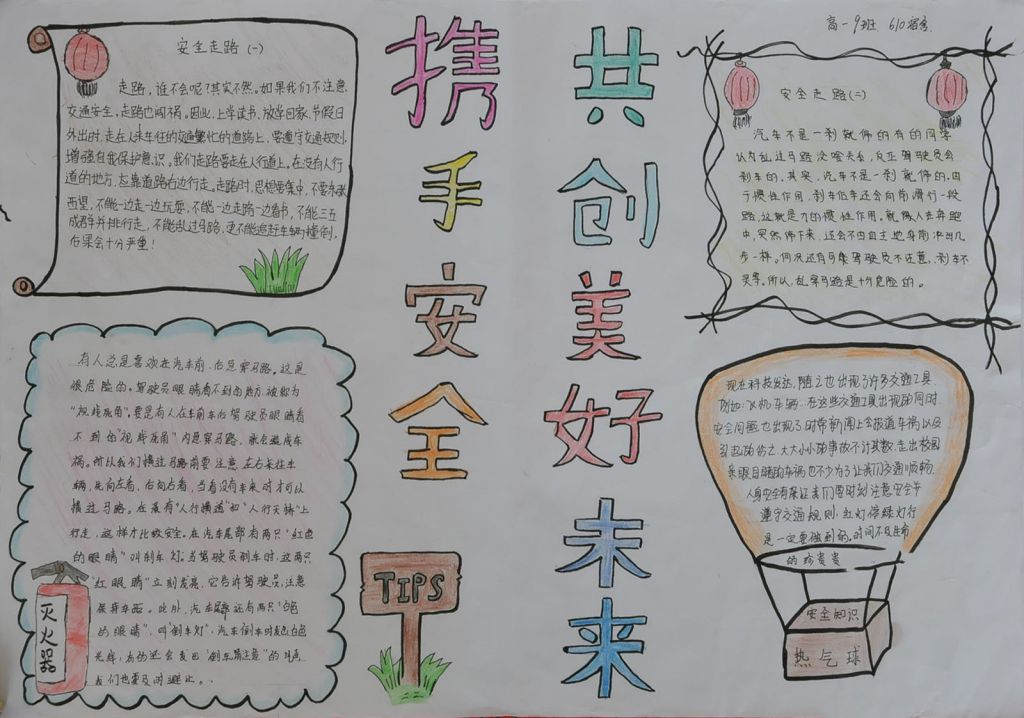 高一9班 610宿舍
携手安全
共创美好未来
安全走路(一)
走路,谁不会呢?其实不然。如果我们不注意
交通安全,走路也闯祸。因此,上学读书,放学回家,节假日
外出时,走在人来车往的交通繁忙的道路上,要遵守交通规则,
增强自我保护意识,我们走路要走在人行道上,在没有人行
道的地方,应靠道路右边行走。走路时,思想要集中,不要东张
西望,不能一边走一边玩耍,不能一边走路一边看书,不能三五
成群并排行走,不能乱过马路,更不能追赶车辆撞倒,
后果会十分严重!
安全走路(二)
汽车不是一刹就停的有的同学
认为乱过马路没啥关系,反正驾驶员会
刹车的,其实,汽车不是一刹就停的,由
于惯性作用,刹车后车还会向前滑行一段
路,这就是力的惯性作用。就像人在奔跑
中,突然停下来,还会不由自主地身向冲出几
步一样。何况还有可能驾驶员不注意,刹车不
灵等。所以,乱穿马路是十分危险的。
有人总是喜欢在汽车前、后急穿马路。这是
很危险的。驾驶员眼睛看不到的地方,被称为
"视线死角"。要是有人在车前车后驾驶员眼睛看
不到的"视线死角"内急穿马路,就会造成车
祸。所以我们横过马路前要注意左右来往车
辆,先向左看,后向右看,当看没有车来时才可以
横过马路。在最有"人行横道"和"人行天桥"上
行走,这样才比较安全。在汽车尾部有两只"红色
的眼睛"叫刹车灯。当驾驶员刹车时,这两只
"红眼睛"立刻发亮,它告诉驾驶员,注意
保持车距。此外,汽车尾部还有两只"白色
的眼睛",叫"倒车灯",汽车倒车时发出白色
光辉,有的还会发出"倒车请注意"的叫声
我们也要及时避让。
灭火器
TIPS
现在科技发达,随之也出现了许多交通工具
例如:飞机、车辆。在这些交通工具出现的同时
安全问题也出现了时常新闻上会报道车祸以及
大大小小的事故不计其数,走出校园
亲眼目睹的车祸也不少为了让我们交通顺畅,
人身安全有保证我们要时刻注意安全
遵守交通规则,红灯停绿灯行
是一定要做到的。时间不及生命
的珍贵贵
安全知识
热气球